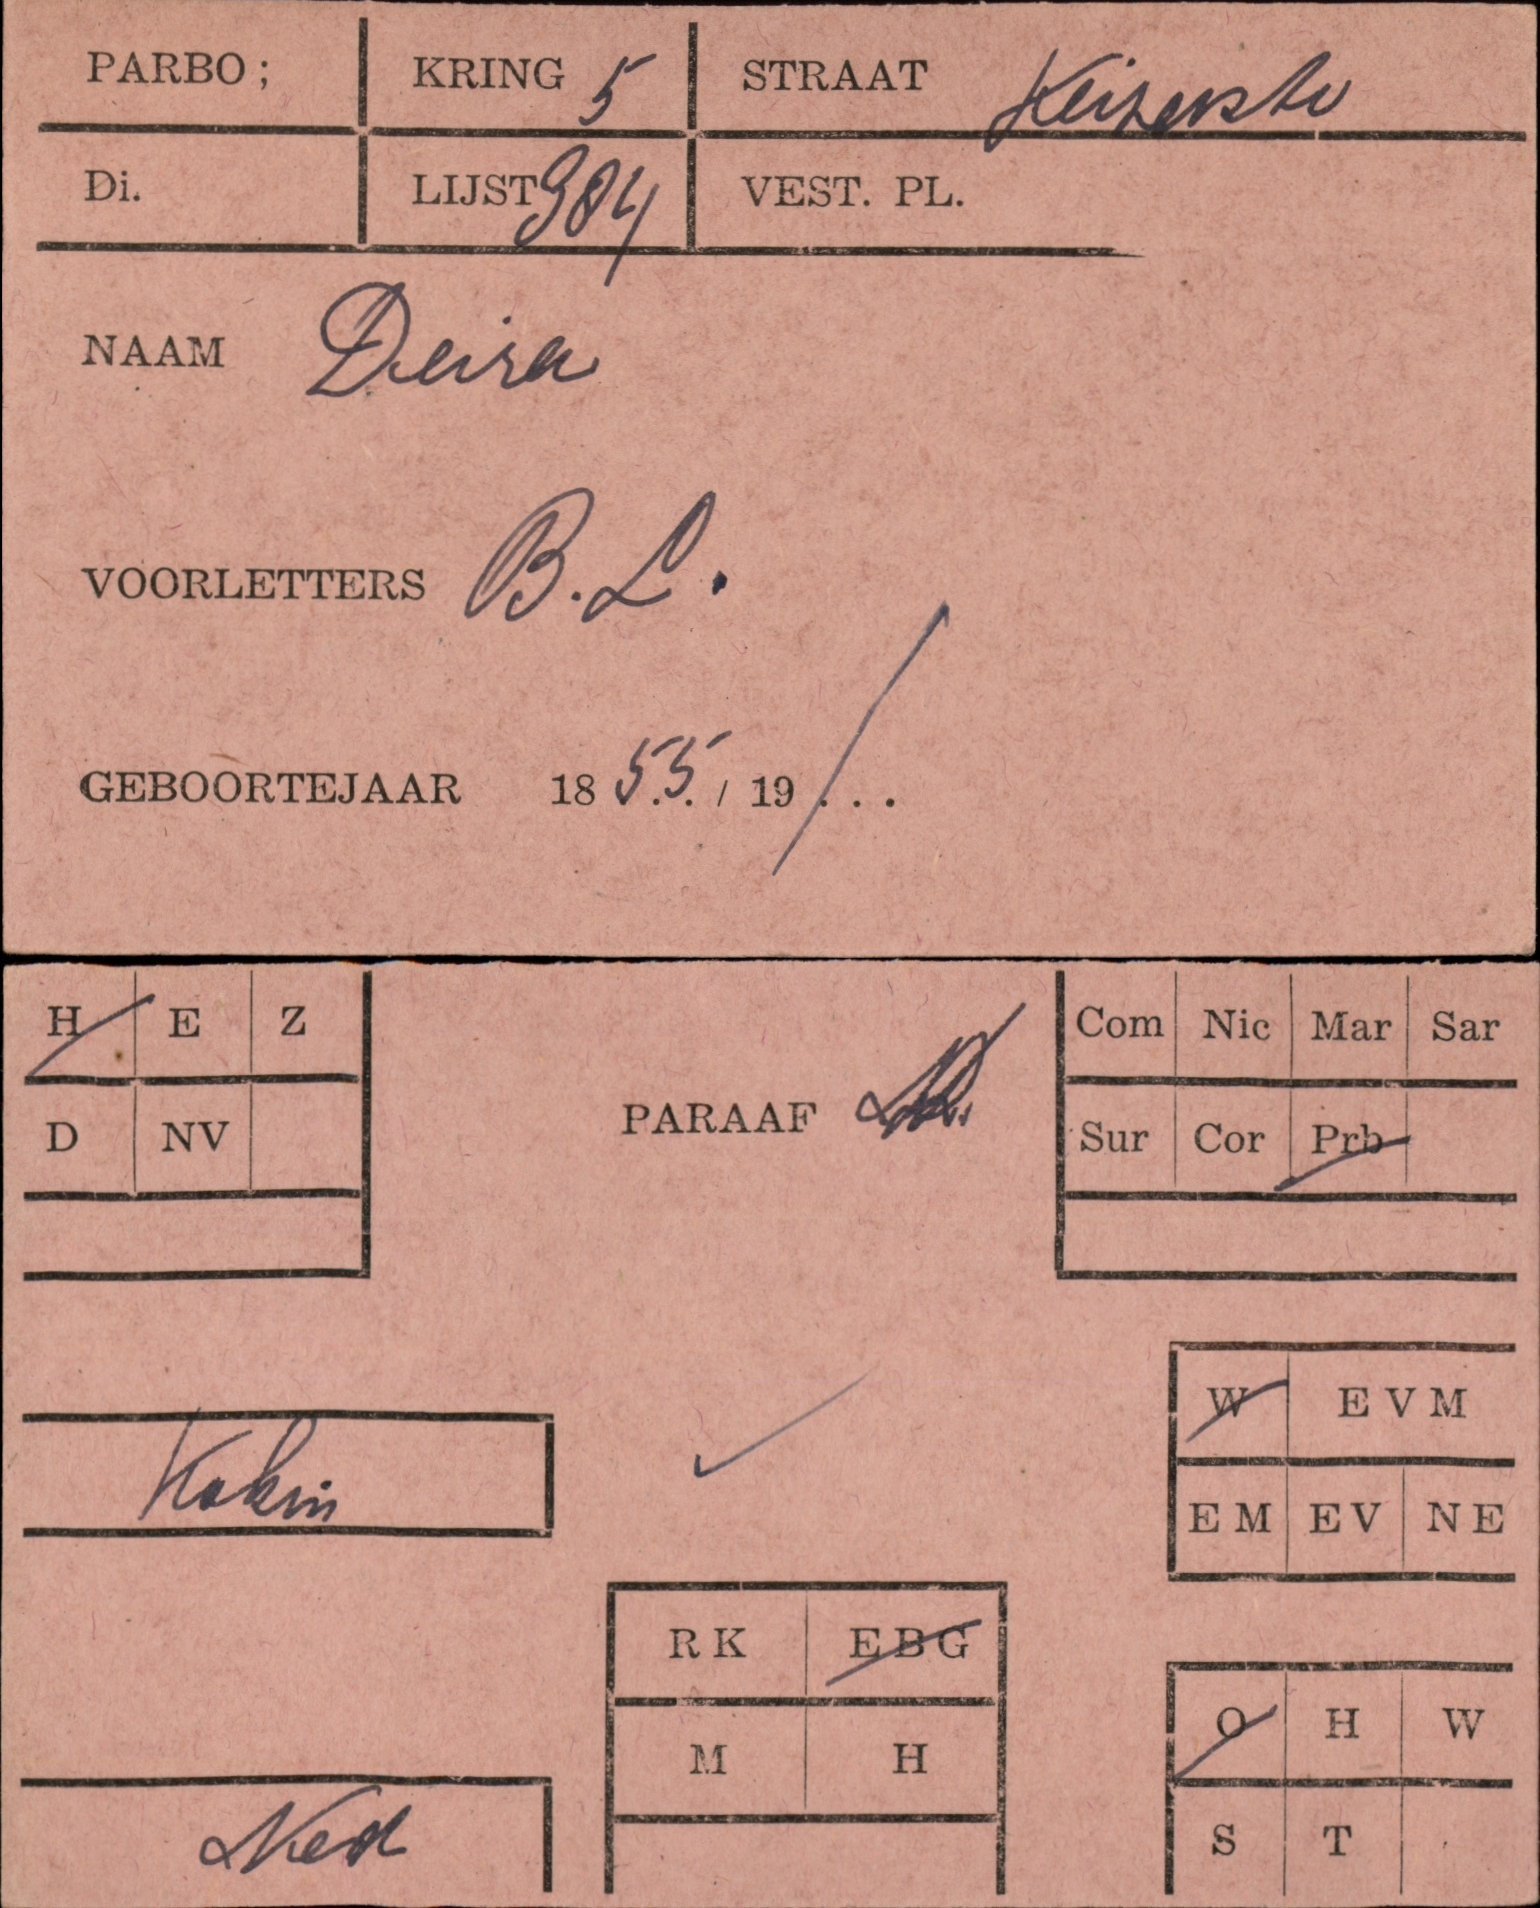 PARBO; KRING 5 STRAAT Keizerstr
Di. LIJST 984 VEST. PL.
NAAM Deira
VOORLETTERS B.L.
GEBOORTEJAAR 18 55. / 19 / . . .
H E Z
D NV
PARAAF
Com Nic Mar Sar
Sur Cor Prb
W E V M
E M E V N E
Kokin
R K E B G
M H
O H W
S T
Ned